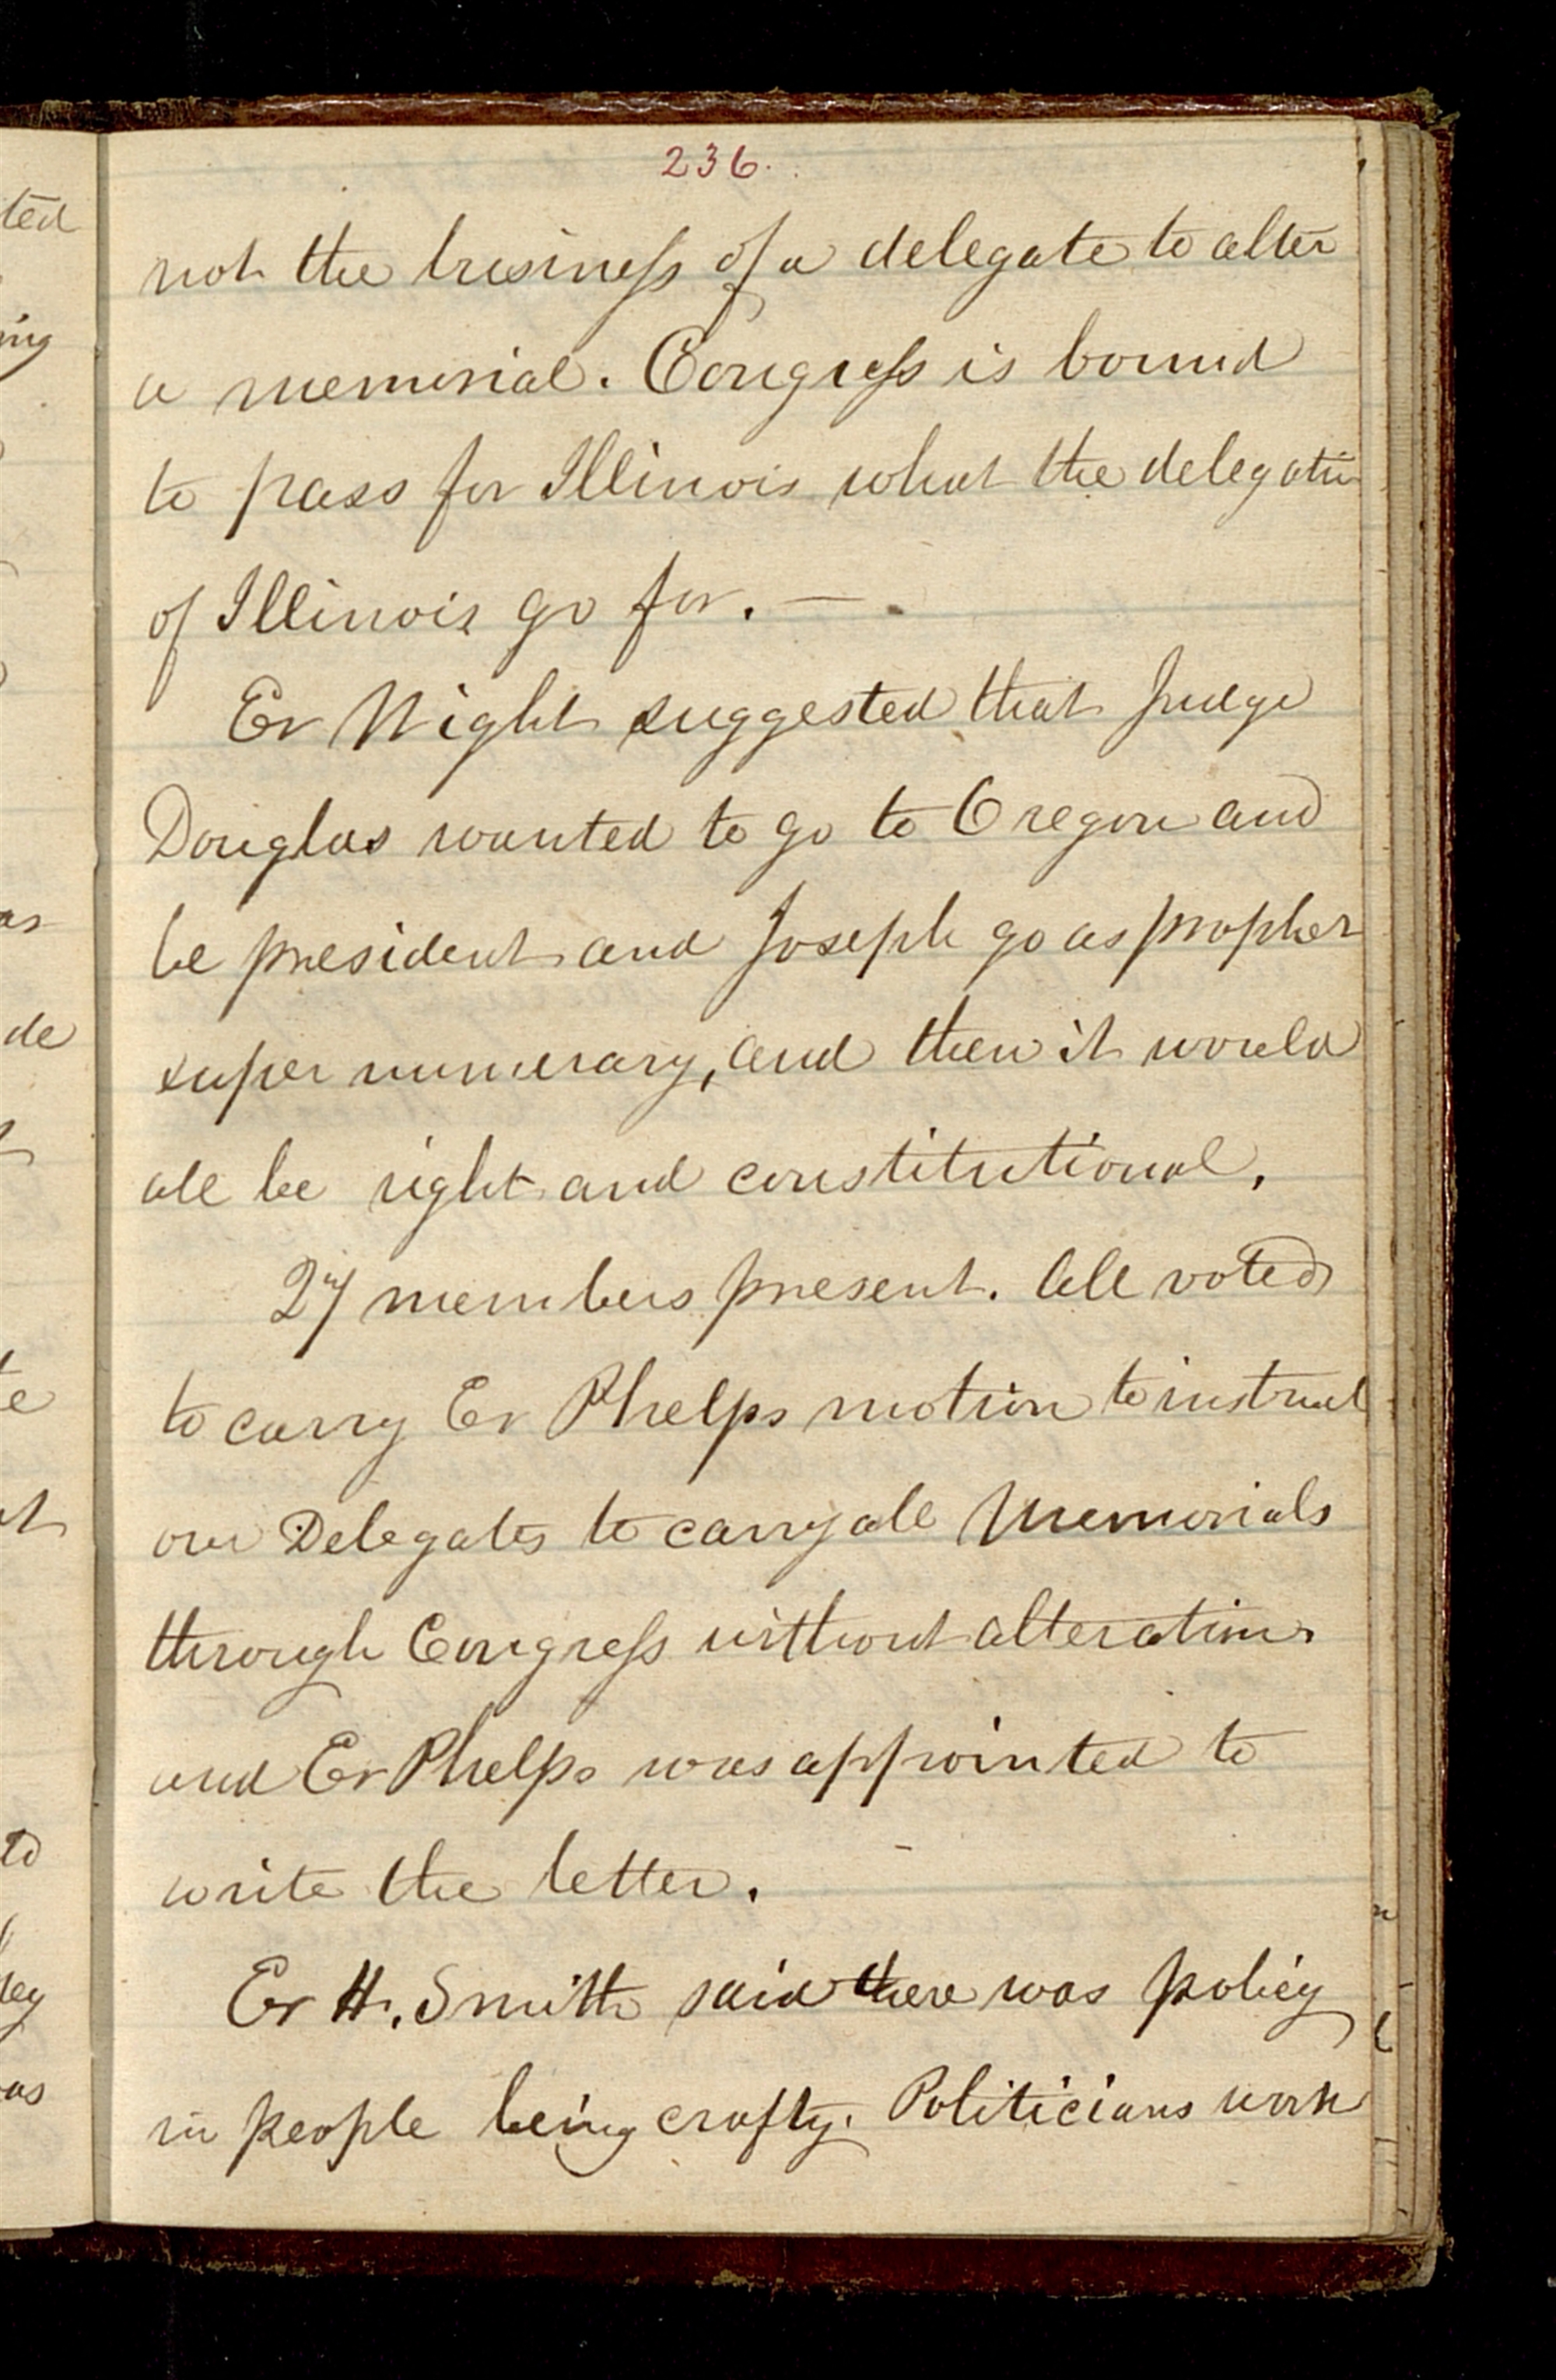 236.
not the business of a delegate to alter
a memorial. Congress is bound
to pass for Illinois what the delegation
of Illinois go for. —
Er Wight suggested that Judge
Douglas wanted to go to Oregon and
be president and Joseph go as prophet
super numerary, and then it would
all be right and constitutional.
27 members present. All voted
to carry Er Phelps motion to instruct
our Delegates to carry all Memorials
through Congress without alteration.
and Er Phelps was appointed to
write the letter.
Er H. Smith said there was policy
in people being crafty. Politicians work